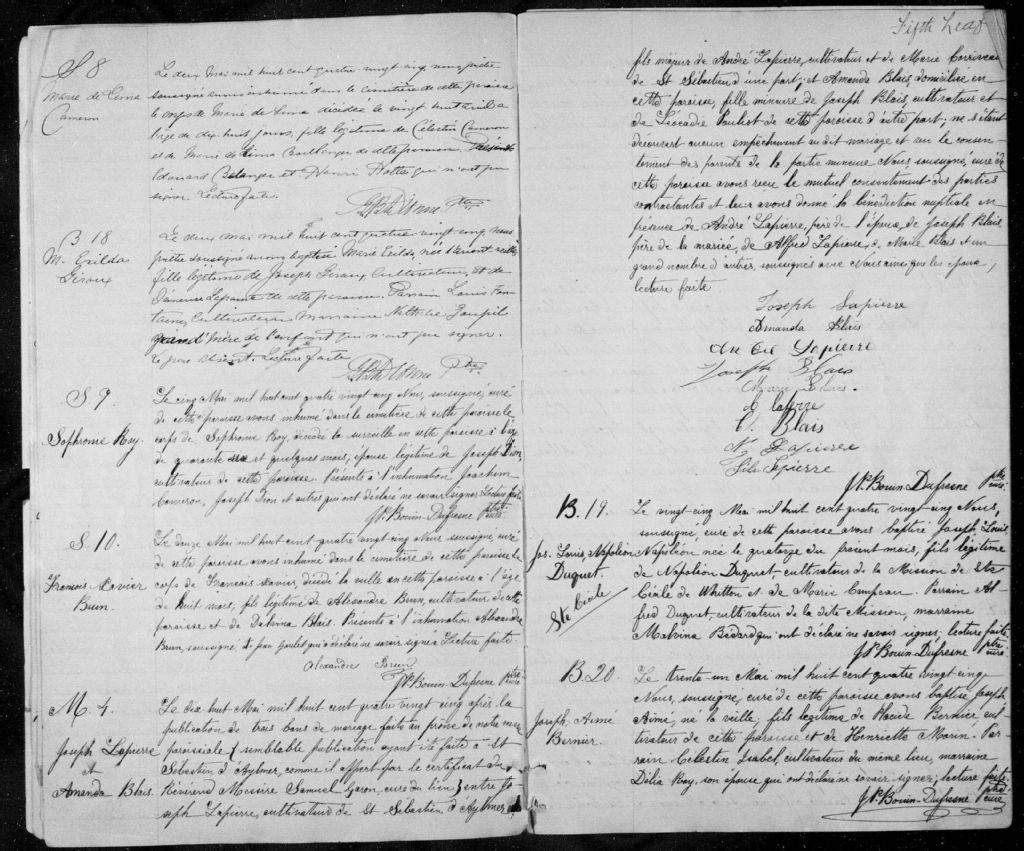 S 8
Marie de Lima
Cameron
Le deux Mai mil huit cent quatre-vingt cinq nous prêtre
soussigné avons inhumé dans le cimetière de cette paroisse
le corps de Marie de Lima décédée le vingt huit avril a
l'age de dix huit jours, fille légitime de Célestin Cameron
et de Marie de Lima Boulanger de cette paroisse. Présents
Edouard Belanger et Henri Hotte qui n'ont pu
signer. Lecture faite.
Ptre
B 18
M. Exilda
Giroux
Le deux mai mil huit cent quatre-vingt-cinq nous
prêtre soussigné avons baptisé Marie Exilda, née l'avant veille,
fille légitime de Joseph Giroux Cultivateur, et de
de cette paroisse. Parrain Louis Fon-
taine, Cultivateur Marraine Goupil
grand'mère de l'enfant qui n'ont pu signer.
Le père absent. Lecture faite
Ptre
S 9.
Sophronie Roy.
Le cinq Mai mil huit cent quatre vingt cinq Nous, soussigné, curé
de cette paroisse avons inhumé dans le cimetière de cette paroisse le
corps de Sophronie Roy, décédée la surveille en cette paroisse à l'âge
de quarante et quelques mois, épouse légitime de Joseph Dion,
cultivateur de cette paroisse. Présents à l'inhumation Joachim
Cameron, Joseph Dion et autres qui ont déclaré ne savoir signer. Lecture faite
J. P. Bouin-Dufresne ptre curé
S. 10.
Francois Xavier
Brun.
Le douze Mai mil huit-cent quatre vingt cinq Nous soussigné curé
de cette paroisse avons inhumé dans le cimetière de cette paroisse le
corps de Francois Xavier décédé la veille en cette paroisse à l'âge
de huit mois, fils légitime de Alexandre Brun, cultivateur de cette
paroisse et de Delvina Blais. Présents à l'inhumation Alexandre
Brun, soussigné et Jean Goulet qui a déclaré ne savoir signer. Lecture faite
Alexandre Brun
J. P. Bouin-Dufresne ptre curé
M. 4.
Joseph Lapierre
et
Amanda Blais.
Le dix huit Mai mil huit cent quatre vingt cinq après la
publication de trois bans de mariage faite au prône de notre messe
paroissiale, semblable publication ayant été faite à St
Sébastien d'Aylmer, comme il appert par le certificat du
Révérend Messire Samuel Garon curé du lieu, entre Jo
seph Lapierre, cultivateur de St Sébastien d'Aylmer
Fifth Leaf
fils majeur de André Lapierre, cultivateur et de Marie Corriveau
de St Sébastien d'une part; et Amanda Blais domiciliée en
cette paroisse, fille mineure de Joseph Blais, cultivateur et
de Léocadie Pouliot de cette paroisse d'autre part; ne s'étant
découvert aucun empechement au dit mariage et vu le consen-
tement des parents de la partie mineure Nous soussigné, curé de
cette paroisse avons reçu le mutuel consentement des parties
contractantes et leur avons donné la bénédiction nuptiale en
présence de André Lapierre, père de l'époux, de Joseph Blais,
père de la mariée, de Alfred Lapierre, de Marie Blais et un
grand nombre d'autres, soussignés avec Nous ainsi que les époux,
lecture faite
Joseph Lapierre
Amanda Blais
Lapierre
Joseph Blais
Marie Blais.
A Lapierre
C. Blais
N. Lapierre
Lapierre
J. P. Bouin-Dufresne ptre curé
B. 19.
Jos. Louis, Napoléon
Duquet.
Ste Cécile
Le vingt-cinq Mai mil huit cent quatre vingt-cinq Nous,
soussigné, curé de cette paroisse avons baptisé Joseph Louis
Napoléon né le quatorze du present mois, fils légitime
de Napoléon Duquet, cultivateur de la Mission de Ste
Cécile de Whitton et de Marie Campeau. Parrain Al-
fred Duquet, cultivateur de la dite Mission, marraine
Malvina Bédard qui ont déclaré ne savoir signer; lecture faite.
J. P. Bouin-Dufresne ptre curé
B. 20.
Joseph. Aimé
Bernier.
Le trente-un Mai mil huit cent quatre vingt-cinq
Nous, soussigné, curé de cette paroisse avons baptisé Joseph
Aimé, né la veille, fils légitime de Placide Bernier cul-
tivateur de cette paroisse et de Henriette Morin. Par-
rain Celestin Isabel, cultivateur du même lieu, marraine
Délia Roy, son épouse qui ont déclaré ne savoir signer; lecture faite
J. P. Bouin-Dufresne ptre curé